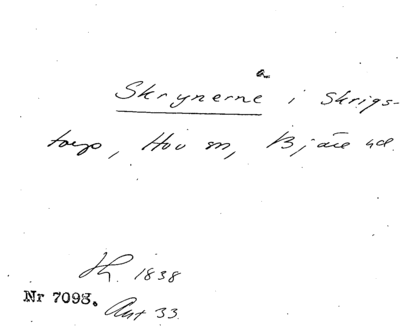 a
Skrynerne i Skrigs-
torp, Hov sn, Bjäre hd.
H. 1838
Nr 7093. Ant 33.